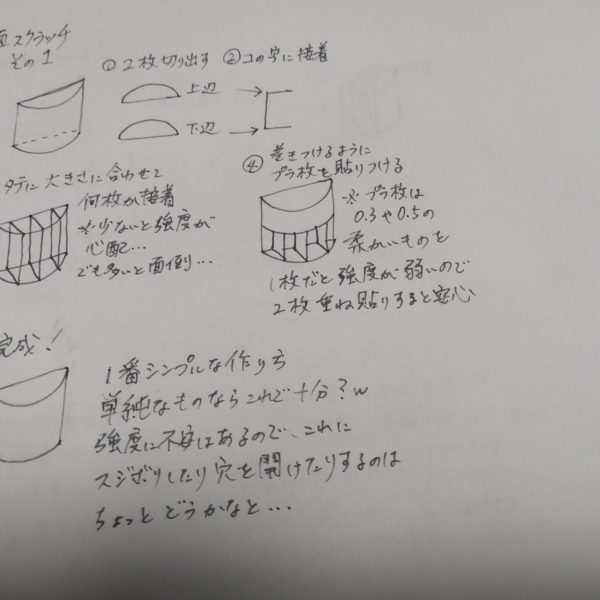 面スクラッチ
その1
① 2枚切り出す
② コの字に接着
上辺
下辺
タテに大きさに合わせて
何枚か接着
※少ないと強度が
心配…
でも多いと面倒…
④ 巻きつけるように
プラ板を貼りつける
※プラ板は
0.3や0.5の
柔かいものを
1枚だと強度が弱いので
2枚重ね貼りすると安心
完成!
1番シンプルな作り方
単純なものならこれで十分?w
強度に不安はあるので、これに
スジボリしたり穴を開けたりするのは
ちょっとどうかなと…